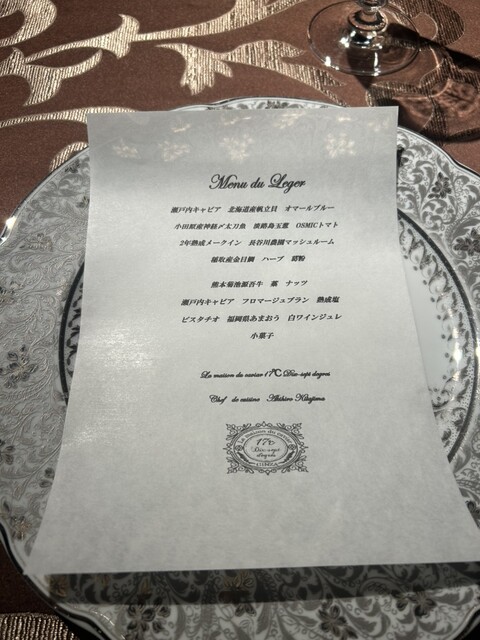 Menu du Leger
瀬戸内キャビア 北海道産帆立貝 オマールブルー
小田原産神経〆太刀魚 淡路島玉葱 OSMICトマト
2年熟成メークイン 長谷川農園マッシュルーム
稲取産金目鯛 ハーブ 葛粉
熊本菊池源吾牛 藁 ナッツ
瀬戸内キャビア フロマージュブラン 熟成塩
ピスタチオ 福岡県あまおう 白ワインジュレ
小菓子
La maison du caviar 17℃ Dix-sept degres
Chef de cuisine Akihiro
La maison du caviar
17℃
Dix-sept
degrés